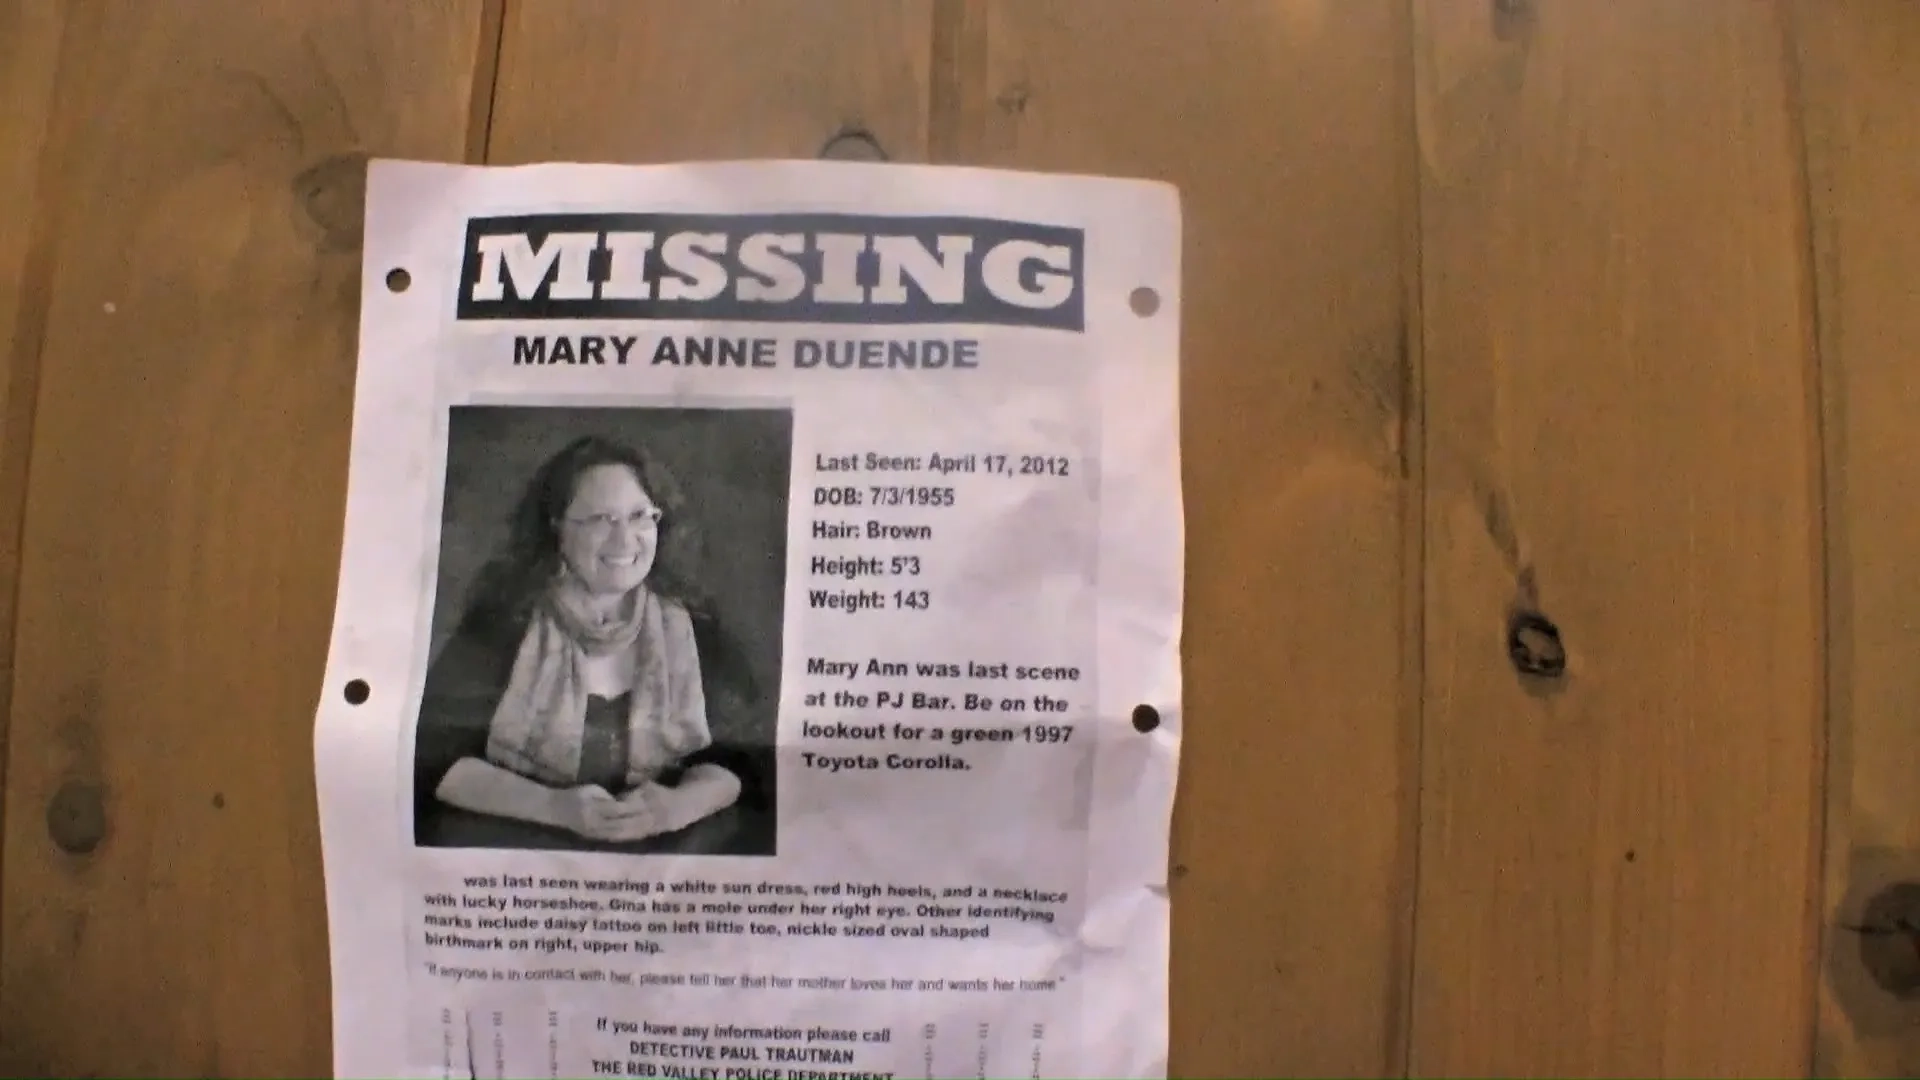 MISSING
MARY ANNE DUENDE
Last Seen: April 17, 2012
DOB: 7/3/1955
Hair: Brown
Height: 5'3
Weight: 143
Mary Ann was last scene
at the PJ Bar. Be on the
lookout for a green 1997
Toyota Corolla.
was last seen wearing a white sun dress, red high heels, and a necklace
with lucky horseshoe. Gina has a mole under her right eye. Other identifying
marks include daisy tattoo on left little toe, nickle sized oval shaped
birthmark on right, upper hip.
"If anyone is in contact with her, please tell her that her mother loves her and wants her home"
If you have any information please call
DETECTIVE PAUL TRAUTMAN
THE RED VALLEY POLICE DEPARTMENT